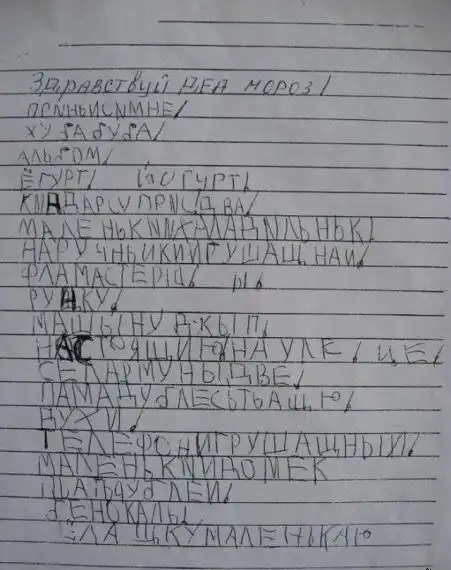 ЗДРАВСТВУЙ ДЕД МОРОЗ!
ПРИНЬИСИМНЕ!
ХУБАБУБА!
АЛЬБОМ!
ЁГУРТ! ЙОГУРТ!
КИНДАРСУПРИСДВА!
МАЛЕНЬКИЙ
НАРУЧНЬИКИИГРУШАЩНАИ!
ФЛАМАСТЕРЫ! Ы!
РУЧКУ!
МАШЫНУ ДЖЫП
НАСТОЯЩИЮ НА УЛЕ! ЦЕ!
СЕЛАРМУНЫДВЕ!
ПАМАДУБЛЕСЬТЬАЩЮ!
ВУХИ!
ТЕЛЕФОНИГРУШАЩНЫЙ!
МАЛЕНЬКИЙДОМЕК
БЕНОКАЛЬ!
ЁЛАЩКУМАЛЕНКАЮ